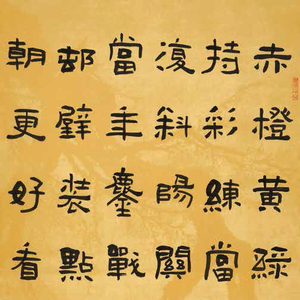 赤橙黄綠
持彩練當
復斜陽關
當年鏖戰
邨壁裝點
朝更好看